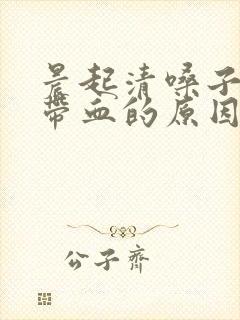 晨起清嗓子
带血的原因
公子齊